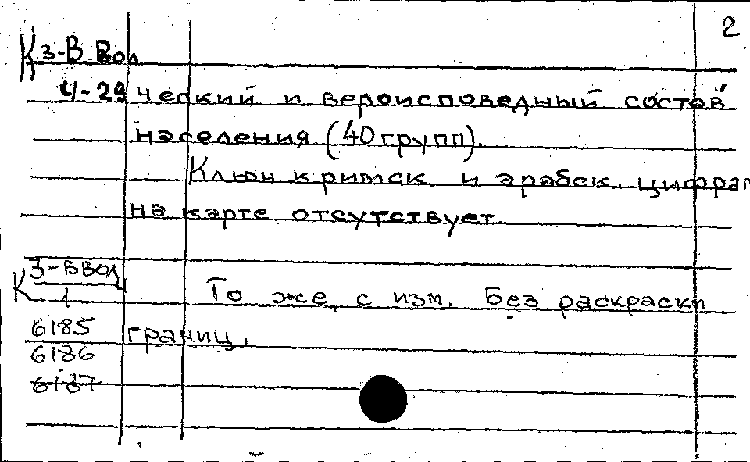 2
К 3-В Вол
4-29 ческий и вероисповедный состав
населения (40 групп).
Ключ к римск. и арабск. цифрам
на карте отсутствует.
К 3-В Вол
1 То же, с изм. Без раскраски
6185 границ.
6186
6187